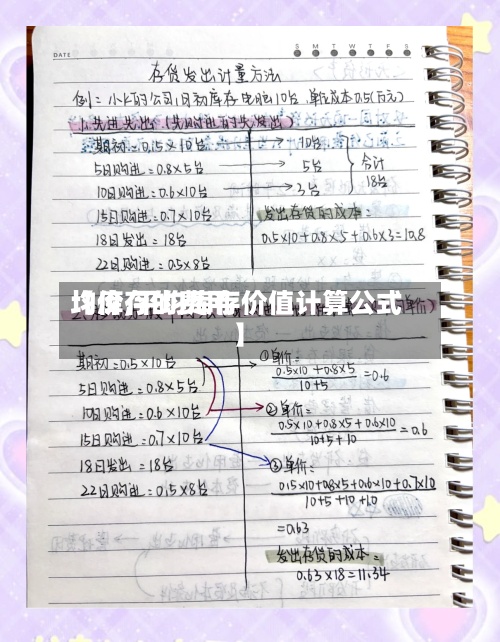 DATE
S M T W T F S
存货发出计量方法
例：小L的公司1月初库存电脑10台,单位成本0.5(万元)
1.先进先出(先购进的先发出)
期初：0.5×10台 → 10台
5日购进：0.8×5台 → 5台
10日购进：0.6×10台 → 3台
合计
18台
15日购进：0.7×10台
18日发出：18台
22日购进：0.5×8台
发出存货的成本：
0.5×10+0.8×5+0.6×3=10.8
价值计算公式
】
期初：0.5×10台
5日购进：0.8×5台
10日购进：0.6×10台
15日购进：0.7×10台
18日发出：18台
22日购进：0.5×8台
①单价：
0.5×10+0.8×5
10+5
=0.6
②单价：
0.5×10+0.8×5+0.6×10
10+5+10
=0.6
③单价：
0.5×10+0.8×5+0.6×10+0.7×10
10+5+10+10
=0.63
发出存货的成本：
0.63×18=11.34